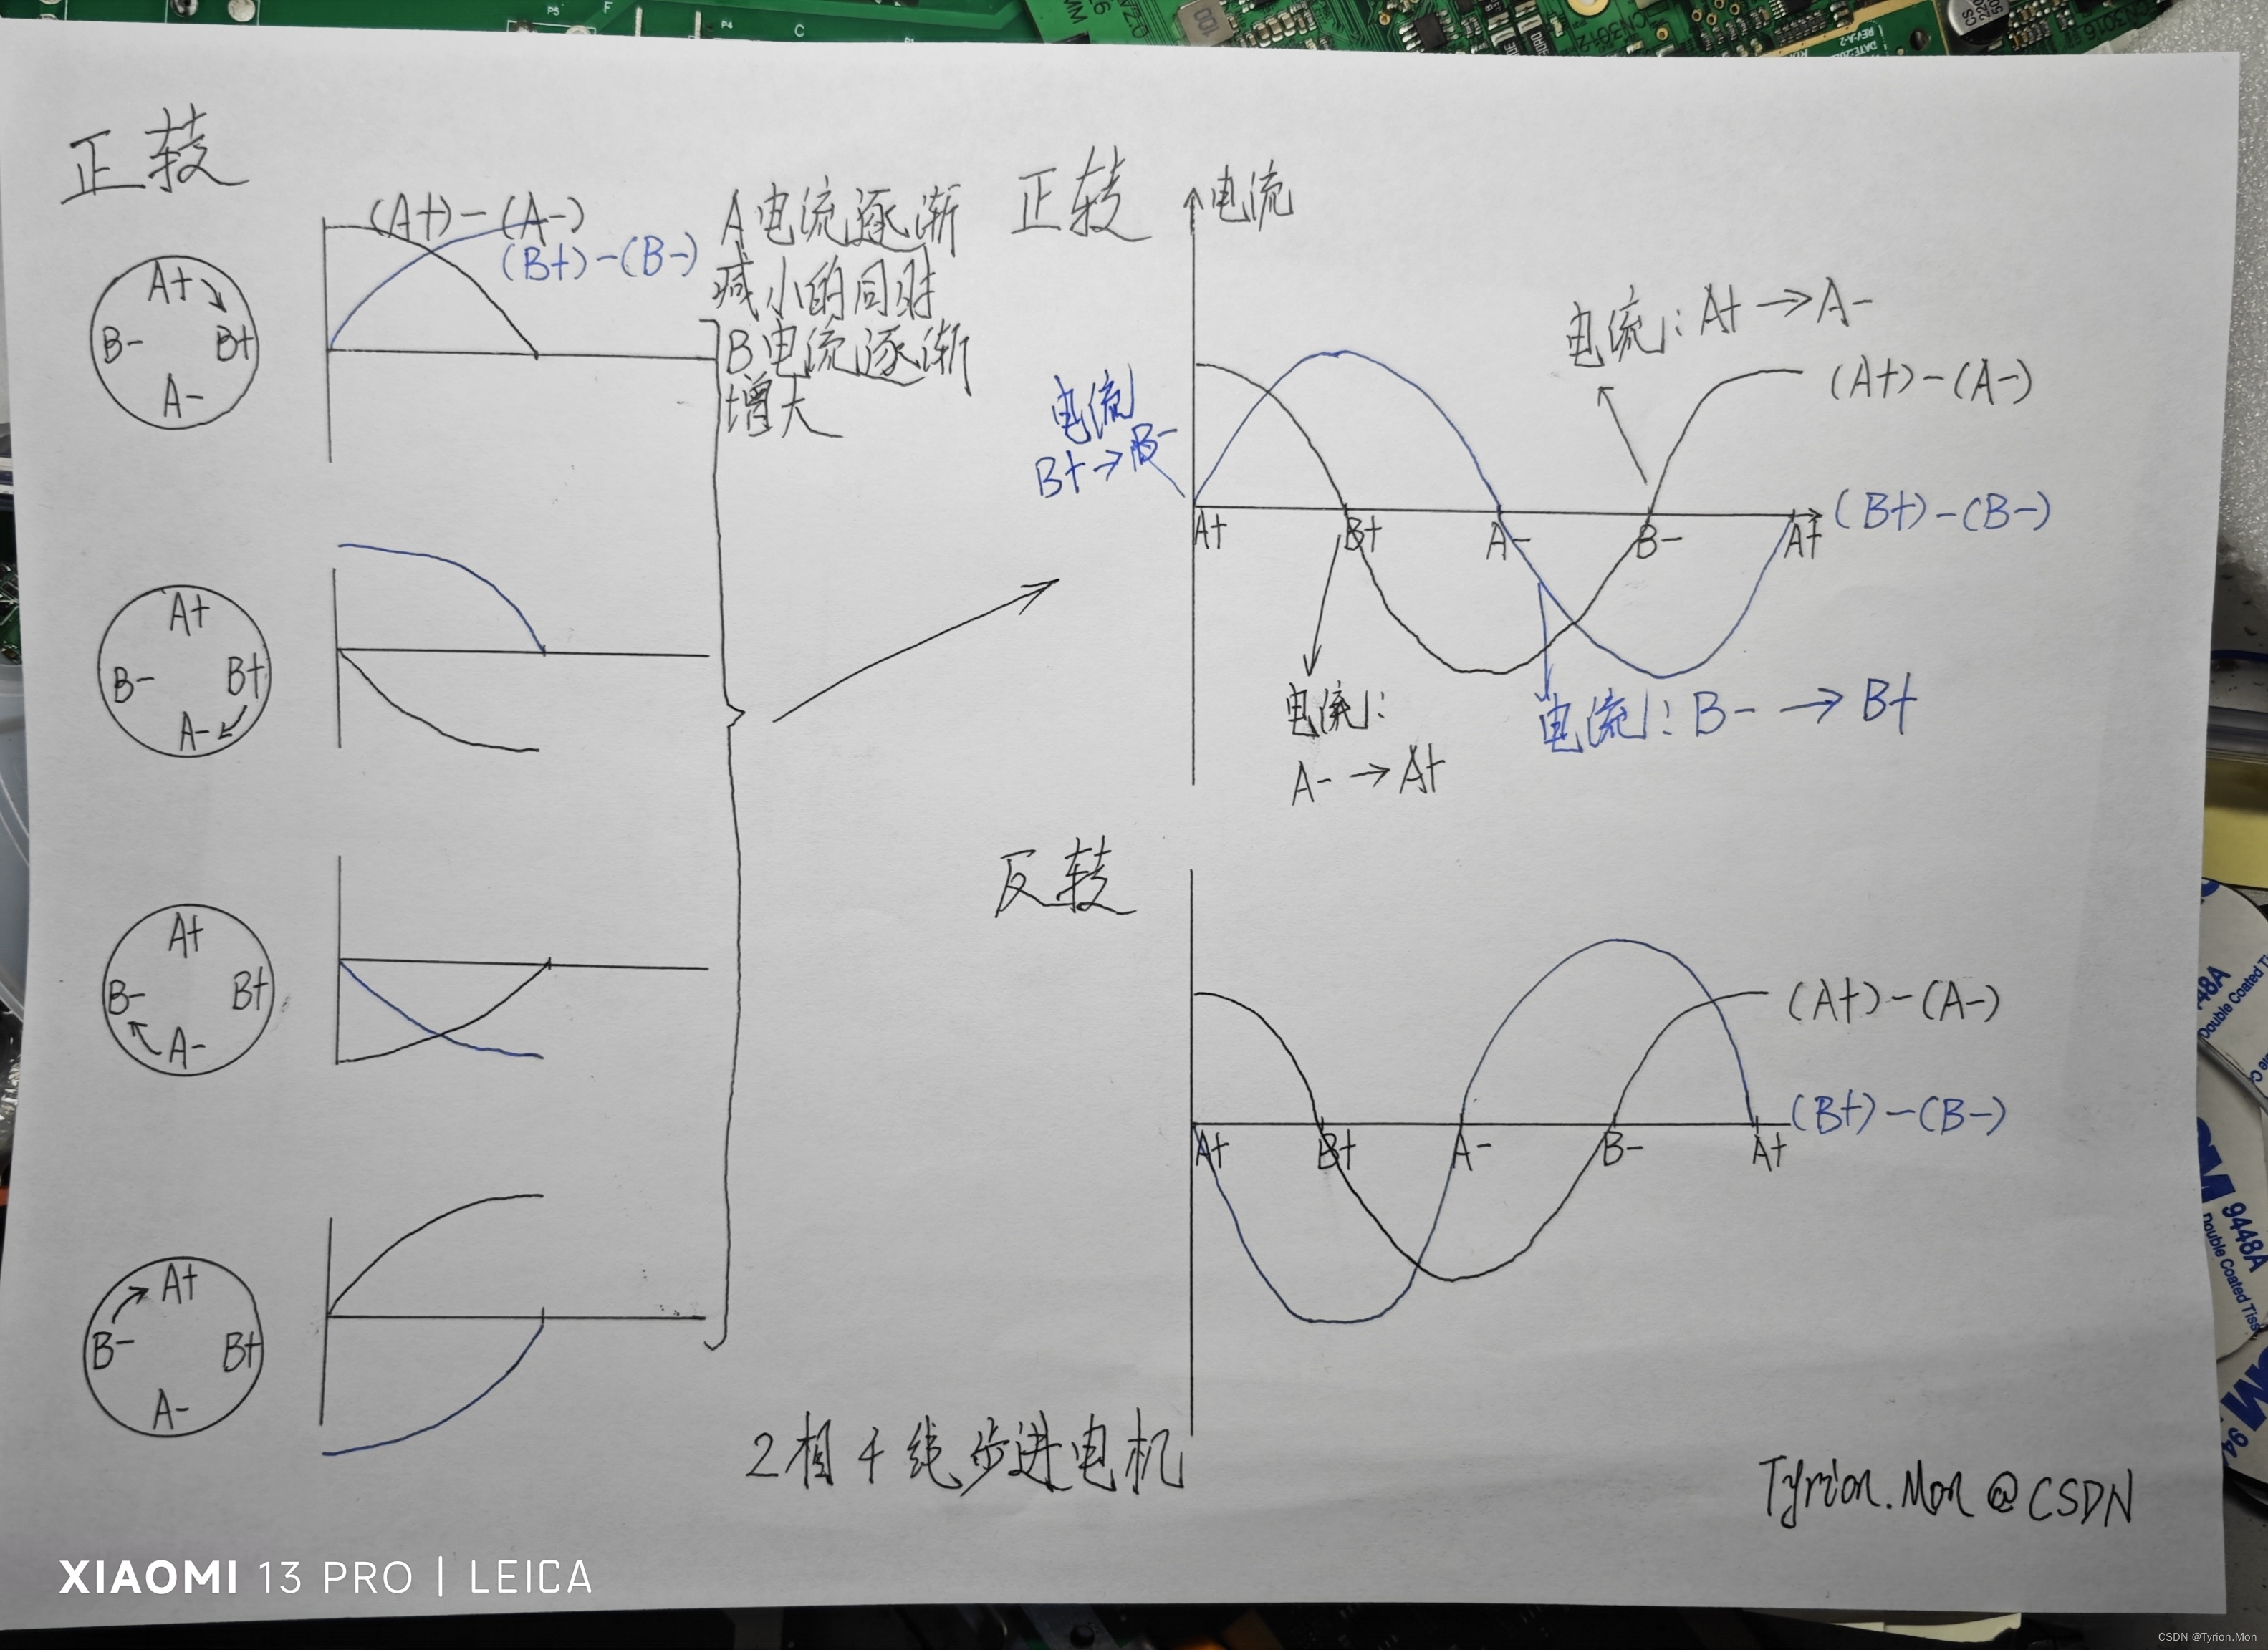 正转
(A+)-(A-)
(B+)-(B-)
A电流逐渐
减小的同时
B电流逐渐
增大
A+
B-
B+
A-
A+
B-
B+
A-
A+
B-
B+
A-
A+
B-
B+
A-
正转
电流
电流
B+→B-
电流:A+→A-
(A+)-(A-)
(B+)-(B-)
A+
B+
A-
B-
A+
电流:
A-→A+
电流:B-→B+
反转
(A+)-(A-)
(B+)-(B-)
A+
B+
A-
B-
A+
2相4线步进电机
Tyrion.Mon @CSDN
XIAOMI 13 PRO | LEICA
CSDN @Tyrion.Mon
9448A
Double Coated Tiss
P5
F
P4
C